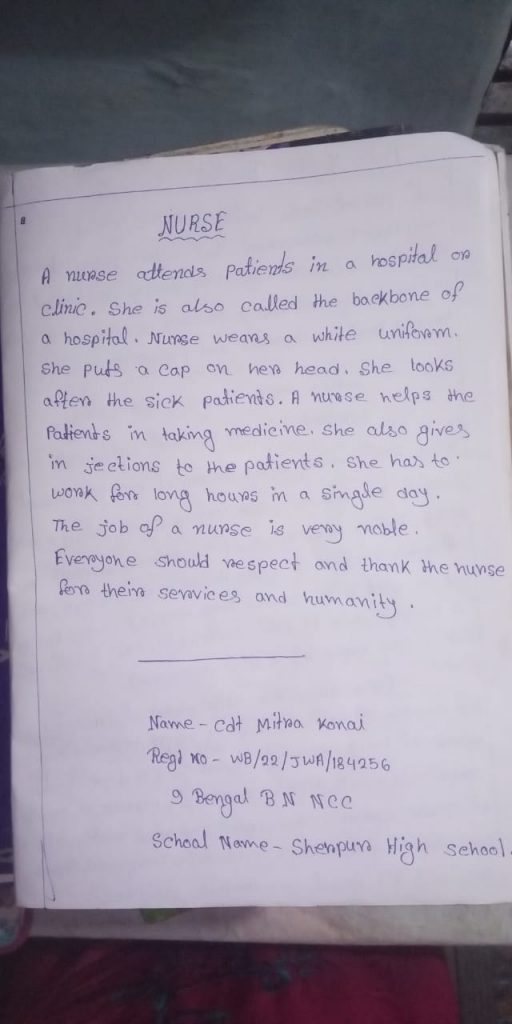 NURSE
A nurse attends patients in a hospital or
clinic. She is also called the backbone of
a hospital. Nurse wears a white uniform.
She puts a cap on her head. She looks
after the sick patients. A nurse helps the
Patients in taking medicine. She also gives
in jections to the patients. She has to
work for long hours in a single day.
The job of a nurse is very noble.
Everyone should respect and thank the nurse
for their services and humanity.
Name - Cdt Mitra Konai
Regd no - WB/22/JWA/184256
9 Bengal BN NCC
School Name - Sherpur High school.